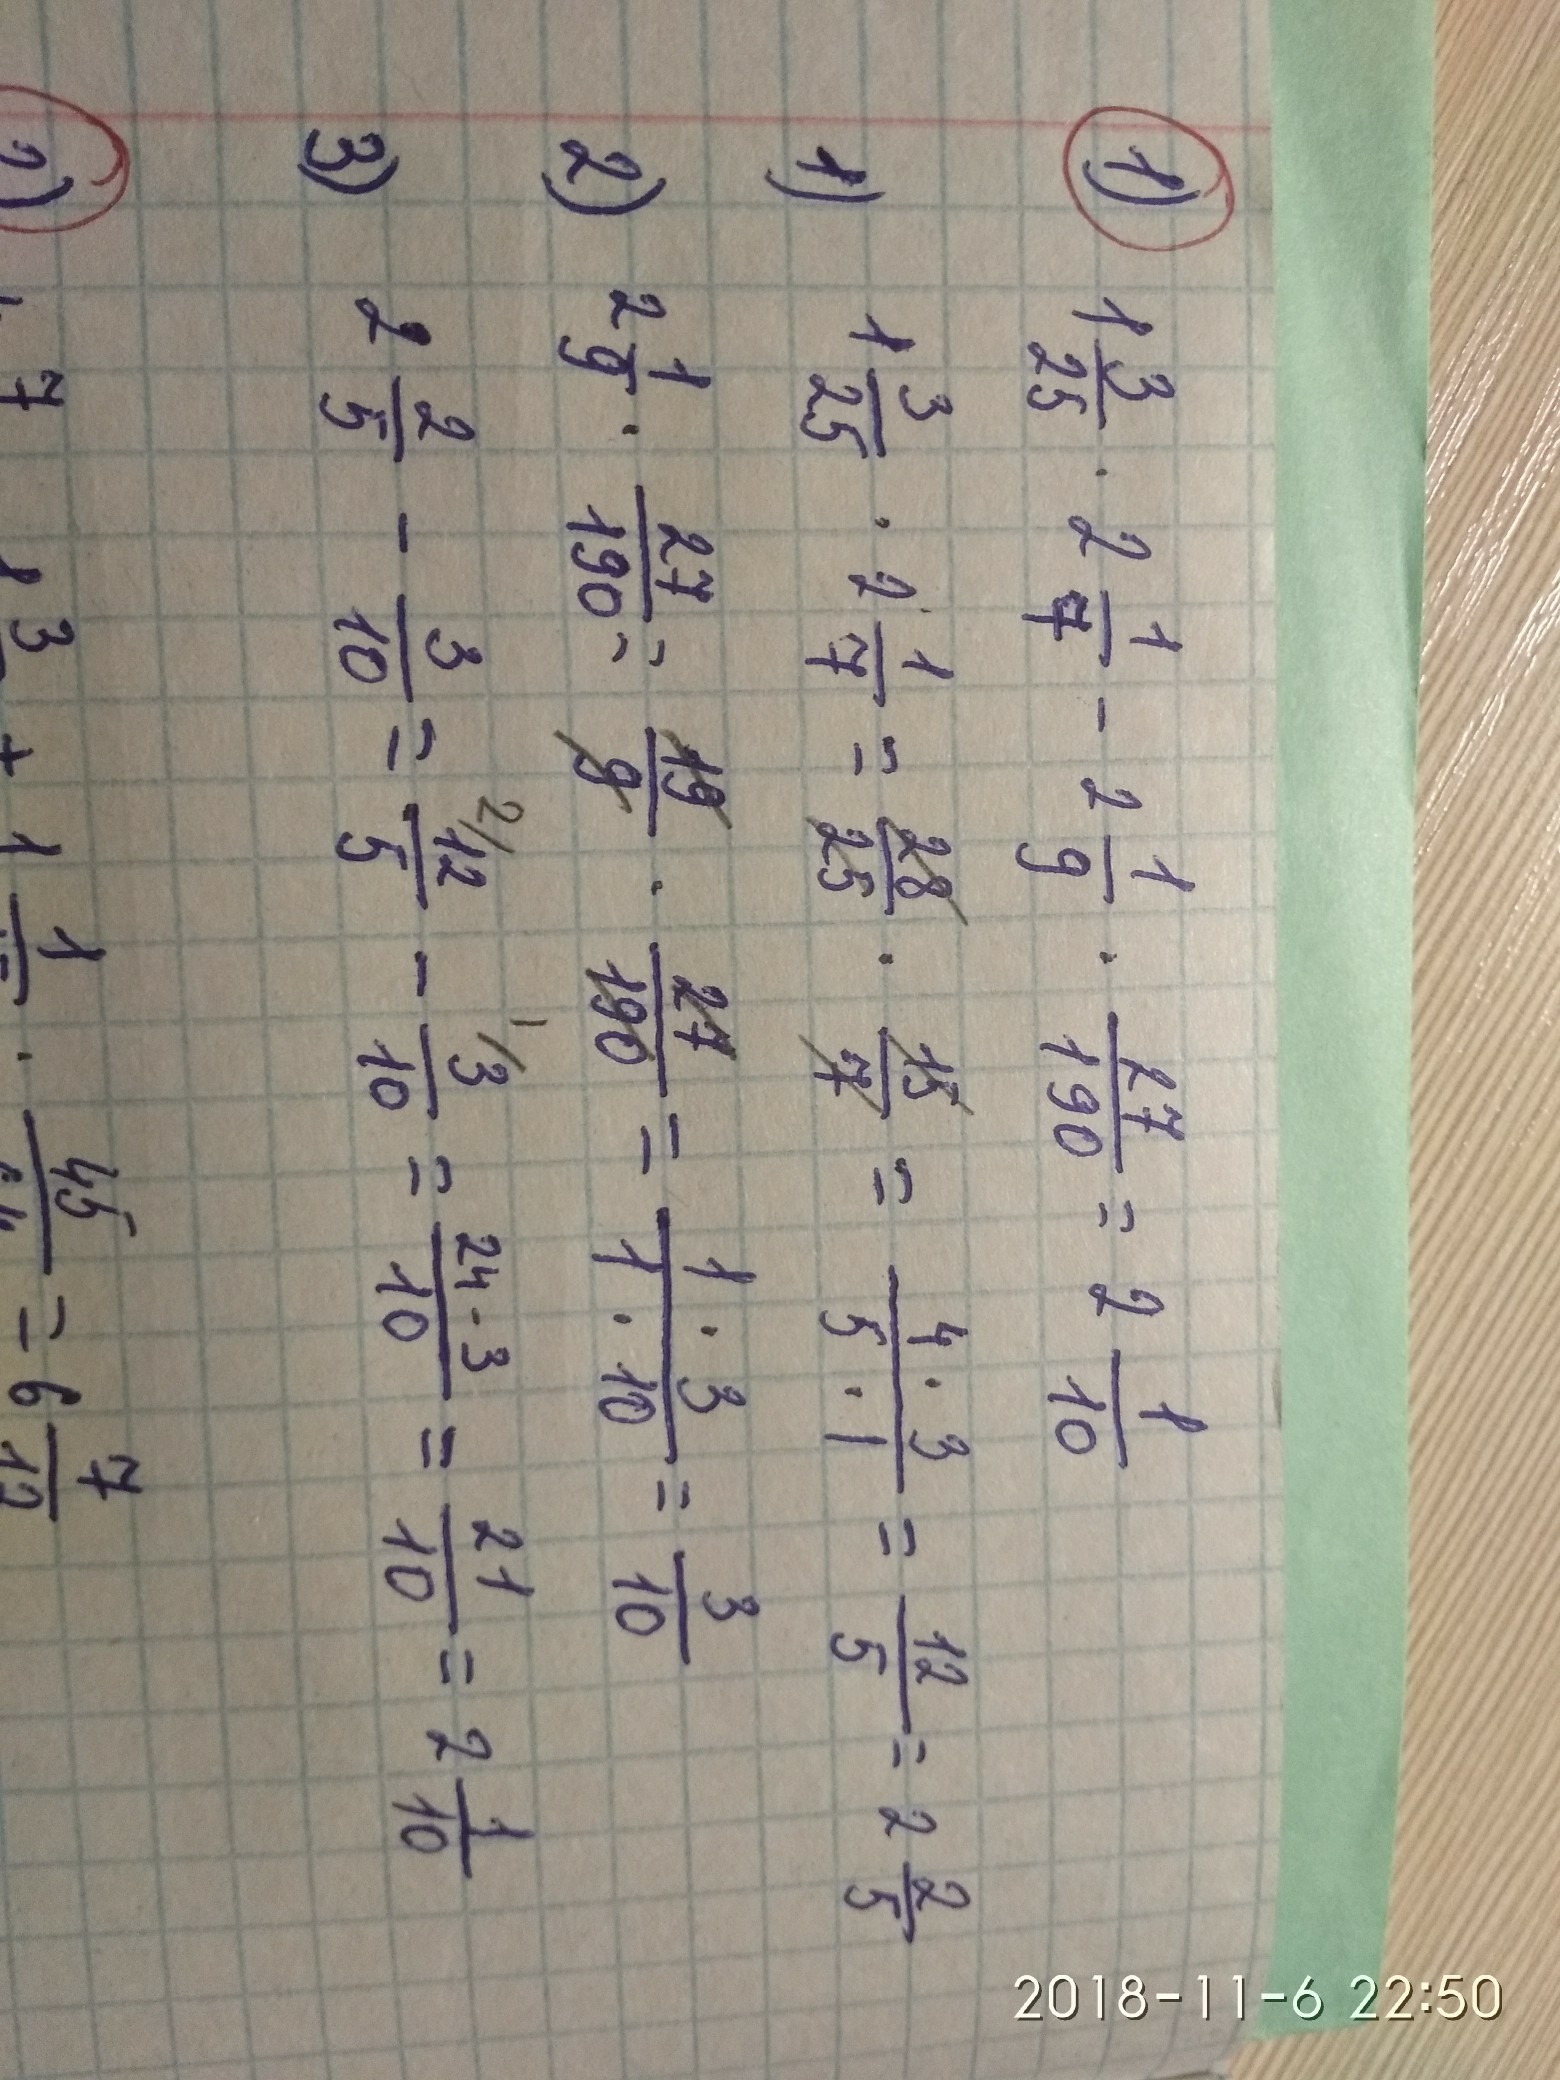 1) 1 3/25 · 2 1/7 - 2 1/9 · 27/190 = 2 1/10
1) 1 3/25 · 2 1/7 = 28/25 · 15/7 = 4 · 3/5 · 1 = 12/5 = 2 2/5
2) 2 1/9 · 27/190 = 19/9 · 27/190 = 1 · 3/1 · 10 = 3/10
3) 2 2/5 - 3/10 = 2/ 12/5 - 1/ 3/10 = 24 - 3/10 = 21/10 = 2 1/10
2) 7 3 + 1 1 · 45 = 6 7/12
2018-11-6 22:50